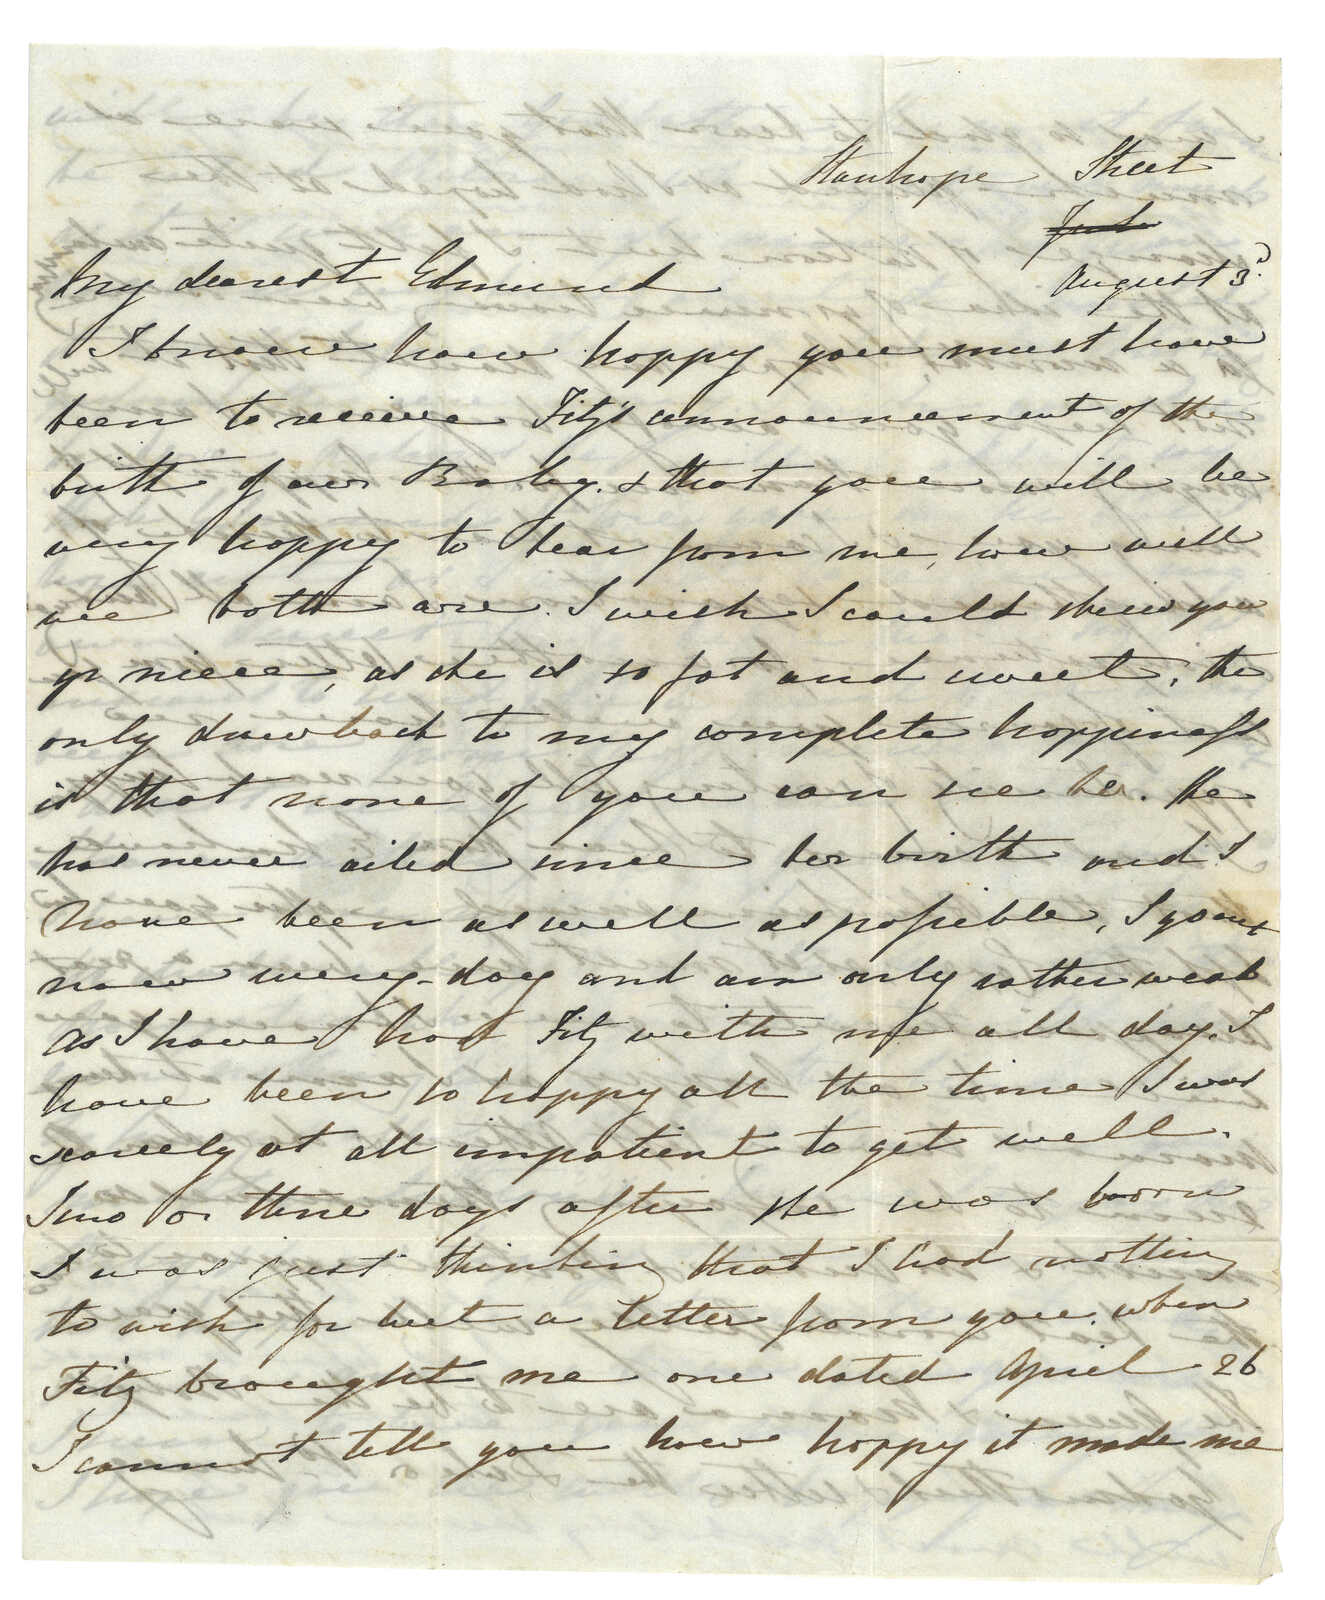 Stanhope Street
July
August 3d.
My dearest Edmund
I know how happy you must have
been to receive Fitz's announcement of the
birth of our Baby. & that you will be
very happy to hear from me, how well
we both are. I wish I could shew you
yr niece, as she is so fat and sweet, the
only drawback to my complete happiness
is that none of you can see her. She
has never ailed since her birth and I
have been as well as possible, I go out
now every-day and am only rather weak
As I have had Fitz with me all day. I
have been so happy all the time I was
scarcely at all impatient to get well.
Two or three days after she was born
I was just thinking that I had nothing
to wish for but a letter from you. when
Fitz brought me one dated April 26
I cannot tell you how happy it made me